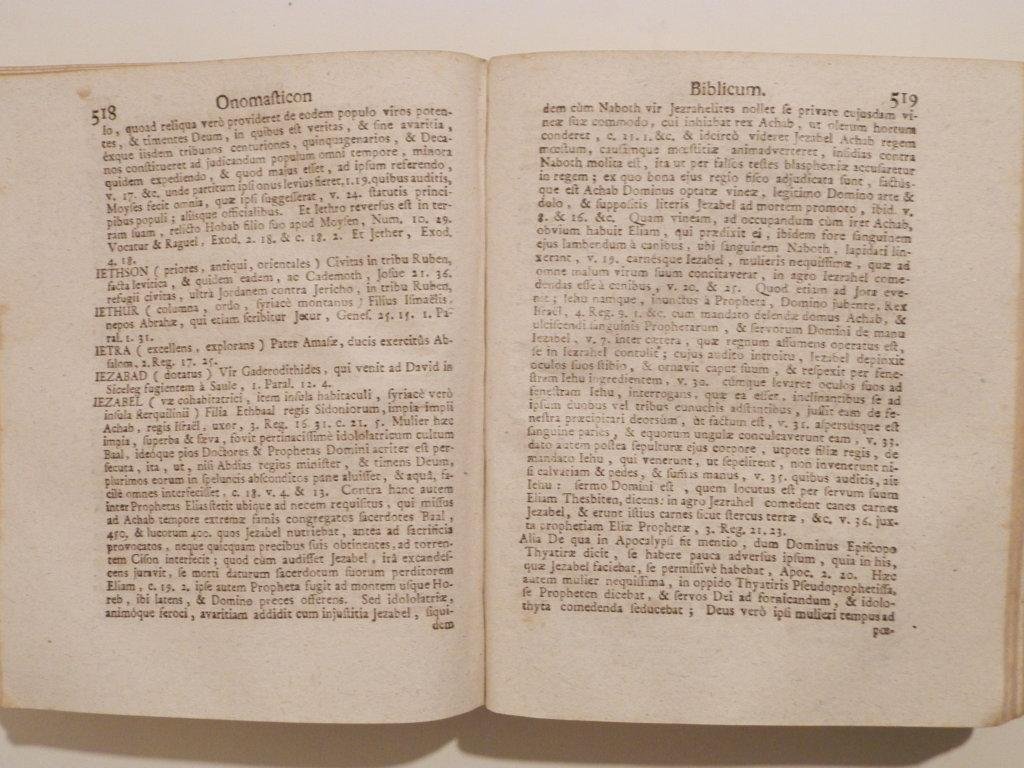 518
Onomaſticon
lo, quoad reliqua verò provideret de eodem populo viros poten-
tes, & timentes Deum, in quibus eſt veritas, & ſine avaritia,
éxque iisdem tribunos centuriones, quinquagenarios, & Deca-
nos conſtitueret ad judicandum populum omni tempore, minora
quidem expediendo, & quod majus eſſet, ad ipſum referendo,
v. 17. &c. unde partitum ipſi onus levius fieret, 1. 19. quibus auditis,
Moyſes fecit omnia, quæ ipſi ſuggeſſerat, v. 24. ſtatutis princi-
pibus populi; aliisque officialibus. Et Iethro reverſus eſt in ter-
ram ſuam, relicto Hobab filio ſuo apud Moyſen, Num. 10. 29.
Vocatur & Raguel, Exod. 2. 18. & c. 18. 2. Et Jether, Exod.
4. 18.
IETHSON ( priores, antiqui, orientales ) Civitas in tribu Ruben,
facta levitica, & quidem eadem, ac Cademoth, Joſue 21. 36.
refugii civitas, ultrà Jordanem contra Jericho, in tribu Ruben,
IETHUR ( columna, ordo, ſyriacè montanus ) Filius Iſmaëlis,
nepos Abrahæ, qui etiam ſcribitur Jetur, Geneſ. 25. 15. 1. Pa-
ral. 1. 31.
IETRA ( excellens, explorans ) Pater Amaſæ, ducis exercitûs Ab-
ſalom, 2. Reg. 17. 25.
IEZABAD ( dotatus ) Vir Gaderodithides, qui venit ad David in
Siceleg fugientem à Saule, 1. Paral. 12. 4.
IEZABEL ( væ cohabitatrici, item inſula habitaculi, ſyriacè verò
inſula ſterquilinii ) Filia Ethbaal regis Sidoniorum, impia impii
Achab, regis Iſraël, uxor, 3. Reg. 16. 31. c. 21. 5. Mulier hæc
impia, ſuperba & ſæva, fovit pertinaciſſimè idololatricum cultum
Baal, ideóque pios Doctores & Prophetas Domini acriter eſt per-
ſecuta, ita, ut, niſi Abdias regius miniſter, & timens Deum,
plurimos eorum in ſpeluncis abſconditos pane aluiſſet, & aquâ, fa-
cilè omnes interfeciſſet, c. 18. v. 4. & 13. Contra hanc autem
inter Prophetas Elias ſtetit ubique ad necem requiſitus, qui miſſus
ad Achab tempore extremæ famis congregatos ſacerdotes Baal,
450, & lucorum 400. quos Jezabel nutriebat, antea ad ſacrificia
provocatos, neque quicquam precibus ſuis obtinentes, ad torren-
tem Ciſon interfecit; quod cùm audiſſet Jezabel, irâ excandeſ-
cens juravit, ſe morti daturum ſacerdotum ſuorum perditorem
Eliam, c. 19. 2. ipſe autem Propheta fugit ad montem uſque Ho-
reb, ibi latens, & Domino preces offerens. Sed idololatriæ,
animóque feroci, avaritiam addidit cum injuſtitia Jezabel, ſiqui-
dem
Biblicum.
519
dem cùm Naboth vir Jezrahelites nollet ſe privare cujusdam vi-
neæ ſuæ commodo, cui inhiabat rex Achab, ut olerum hortum
conderet, c. 21. 1. &c. & idcircò videret Jezabel Achab regem
mœſtum, cauſámque mœſtitiæ animadverteret, inſidias contra
Naboth molita eſt, ita ut per falſos teſtes blasphemiæ accuſaretur
in regem; ex quo bona ejus regio fiſco adjudicata ſunt, factus-
que eſt Achab Dominus optatæ vineæ, legitimo Domino arte &
dolo, & ſuppoſitis literis Jezabel ad mortem promoto, ibid. v.
8. & 16. &c. Quam vineam, ad occupandum cùm iret Achab,
obvium habuit Eliam, qui prædixit ei, ibidem fore ſanguinem
ejus lambendum à canibus, ubi ſanguinem Naboth, lapidati lin-
xerant, v. 19. carnésque Iezabel, mulieris nequiſſimæ, quæ ad
omne malum virum ſuum concitaverat, in agro Iezrahel come-
dendas eſſe à canibus, v. 20. & 25. Quod etiam ad Jota eve-
nit; Iehu namque, inunctus à Propheta, Domino jubente, Rex
Iſraël, 4. Reg. 9. 1. &c. cum mandato delendæ domus Achab, &
ulciſcendi ſanguinis Prophetarum, & ſervorum Domini de manu
Iezabel, v. 7. inter cætera, quæ regnum aſſumens operatus eſt,
ſe in Iezrahel contulit; cujus audito introitu, Iezabel depinxit
oculos ſuos ſtibio, & ornavit caput ſuum, & reſpexit per fene-
ſtram Iehu ingredientem, v. 30. cúmque levaret oculos ſuos ad
feneſtram Iehu, interrogans, quæ ea eſſet, inclinantibus ſe ad
ipſum duobus vel tribus eunuchis adſtantibus, juſſit eam de fe-
neſtra præcipitari deorſùm, ut factum eſt, v. 31. aſperſusque eſt
ſanguine paries, & equorum ungulæ conculcaverunt eam, v. 33.
dato autem poſtea ſepulturæ ejus corpore, utpote filiæ regis, de
mandato Iehu, qui venerunt, ut ſepelirent, non invenerunt ni-
ſi calvariam & pedes, & ſumas manus, v. 35. quibus auditis, ait
Iehu: ſermo Domini eſt, quem locutus eſt per ſervum ſuum
Eliam Thesbiten, dicens: in agro Jezrahel comedent canes carnes
Jezabel, & erunt iſtius carnes ſicut ſtercus terræ, &c. v. 36. jux-
ta prophetiam Eliæ Prophetæ, 3. Reg. 21. 23.
Alia De qua in Apocalypſi fit mentio, dum Dominus Epiſcopo
Thyatiræ dicit, ſe habere pauca adverſus ipſum, quia in his,
quæ Jezabel faciebat, ſe permiſſivè habebat, Apoc. 2. 20. Hæc
autem mulier nequiſſima, in oppido Thyatiris Pſeudopropheſiſſa,
ſe Propheten dicebat, & ſervos Dei ad fornicandum, & idolo-
thyta comedenda ſeducebat; Deus verò ipſi mulieri tempus ad
pœ-